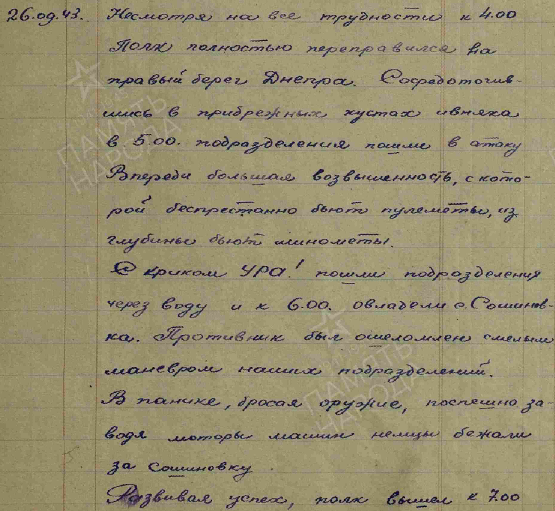 26.09.43. Несмотря на все трудности к 4.00
Полк полностью переправился на
правый берег Днепра. Сосредоточив-
шись в прибрежных кустах ивняка
в 5.00. подразделения пошли в атаку
Впереди большая возвышенность, с кото-
рой беспрестанно бьют пулеметы, из
глубины бьют минометы.
С криком УРА! пошли подразделения
через воду и к 6.00. овладели с. Сошинов-
ка. Противник был ошеломлен смелым
маневром наших подразделений.
В панике, бросая оружие, поспешно за-
водя моторы машин немцы бежали
за Сошиновку.
Развивая успех, полк вышел к 7.00
ПАМЯТЬ
НАРОДА
ПАМЯТЬ
НАРОДА